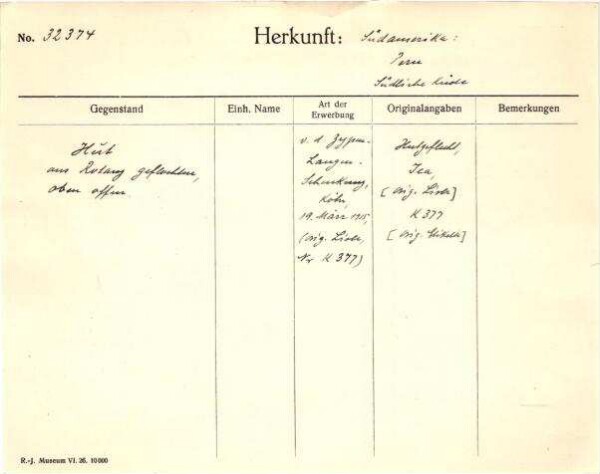 No. 32374
Herkunft:
Südamerika:
Peru
Südliche Küste
Gegenstand
Einh. Name
Art der Erwerbung
Originalangaben
Bemerkungen
Hut
aus Rotang geflochten,
oben offen.
v. d. Zypen-
Langen-
Schenkung,
Köln,
19. März 1915,
(orig. Liste,
Nr K 377)
Hutgeflecht,
Ica,
[orig. Liste]
K 377
[orig. Etikette]
R.-J. Museum VI. 26. 10000